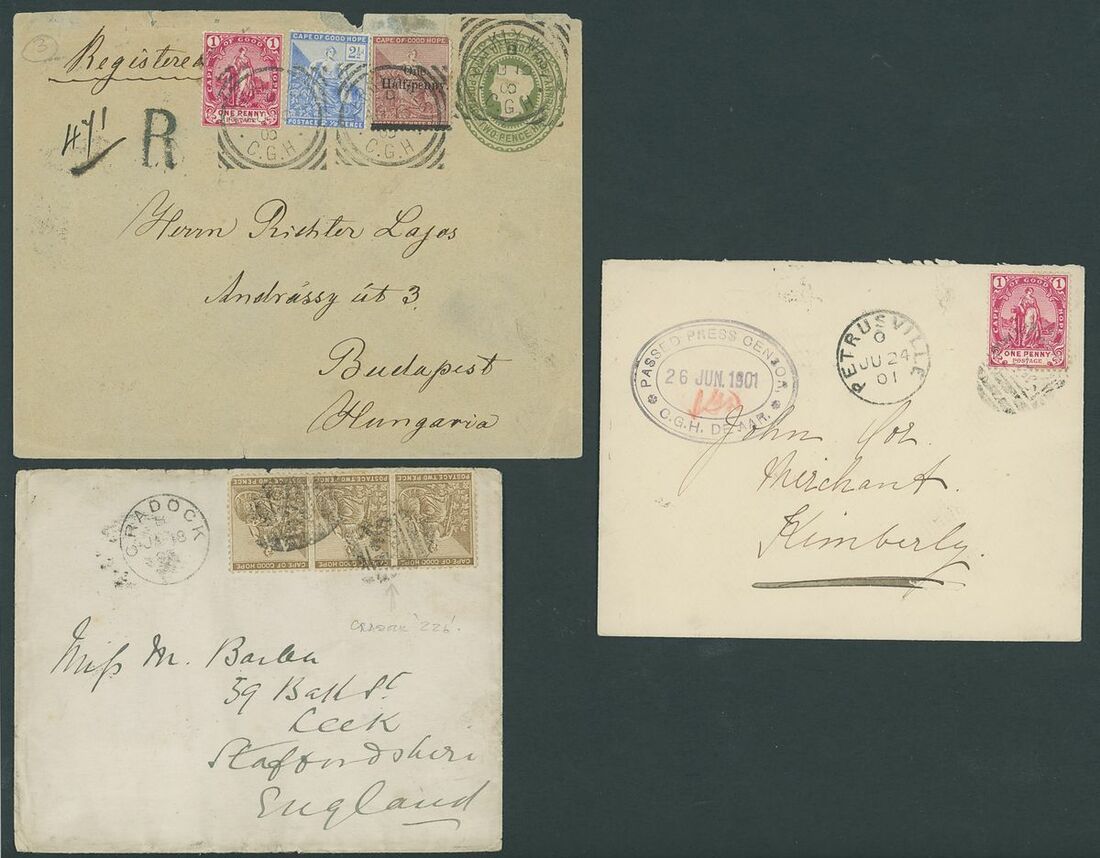 3
Registered
1 CAPE OF GOOD HOPE 1
ONE PENNY
POSTAGE
CAPE OF GOOD HOPE
2½
POSTAGE 2½ PENCE
CAPE OF GOOD HOPE
One
Halfpenny
TWO-PENCE
C.G.H
C.G.H
C.G.H
R
Herrn Richter Lajos
Andrássy út 3
Budapest
Hungaria
1 CAPE OF GOOD HOPE 1
ONE PENNY
POSTAGE
PETRUSVILLE
JU 24
01
PASSED PRESS CENSOR.
26 JUN. 1901
C.G.H. DE AAR.
John
Merchant.
Kimberly.
CRADOCK
POSTAGE TWO PENCE
POSTAGE TWO PENCE
POSTAGE TWO PENCE
CAPE OF GOOD HOPE
CAPE OF GOOD HOPE
CAPE OF GOOD HOPE
Miss M.
39 Ball St
Leek
Staffordshire
England